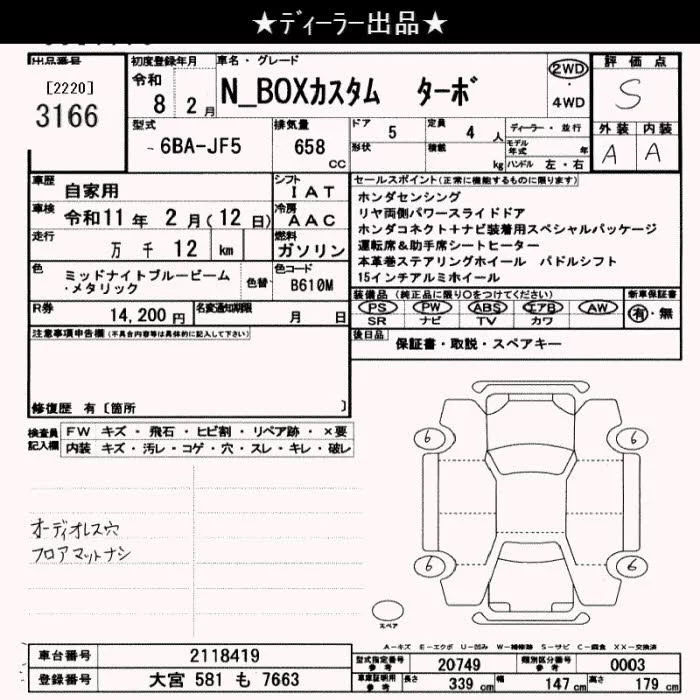 ★ディーラー出品★
出品番号
[2220]
3166
初度登録年月
令和
8 2月
車名・グレード
N_BOXカスタム ターボ
2WD
・
4WD
評価点
S
外装 内装
A A
型式
6BA-JF5
排気量
658
CC
ドア 5
定員 4人
形状
積載 kg
ディーラー・並行
モデル年式 年
ハンドル 左・右
車歴 自家用
シフト IAT
車検 令和11年 2月(12日)
冷房 AAC
走行 万 千 12 km
燃料 ガソリン
色 ミッドナイトブルービーム
・メタリック
色替
色コード
B610M
R券 14,200円
名変通知期限 月 日
セールスポイント(正常に機能するものに限ります)
ホンダセンシング
リヤ両側パワースライドドア
ホンダコネクト+ナビ装着用スペシャルパッケージ
運転席&助手席シートヒーター
本革巻ステアリングホイール パドルシフト
15インチアルミホイール
装備品(純正品に限り○をつけてください)
PS PW ABS エアB AW
SR ナビ TV カワ
新車保証書
有・無
後日品 保証書・取説・スペアキー
注意事項申告欄(不具合内容等は具体的に記入して下さい)
修復歴 有[箇所 ]
検査員
記入欄
FW キズ・飛石・ヒビ割・リペア跡・×要
内装 キズ・汚レ・コゲ・穴・スレ・キレ・破レ
オーディオレス穴
フロアマットナシ
6 6
6 6
スペア
A－キズ E－エクボ U－凹み W－補修跡 S－サビ C－腐食 XX－交換済
車台番号 2118419
登録番号 大宮 581 も 7663
型式指定番号
参考
20749
類別区分番号
参考
0003
車庫証明用
参考
長さ 339 cm 幅 147 cm 高さ 179 cm